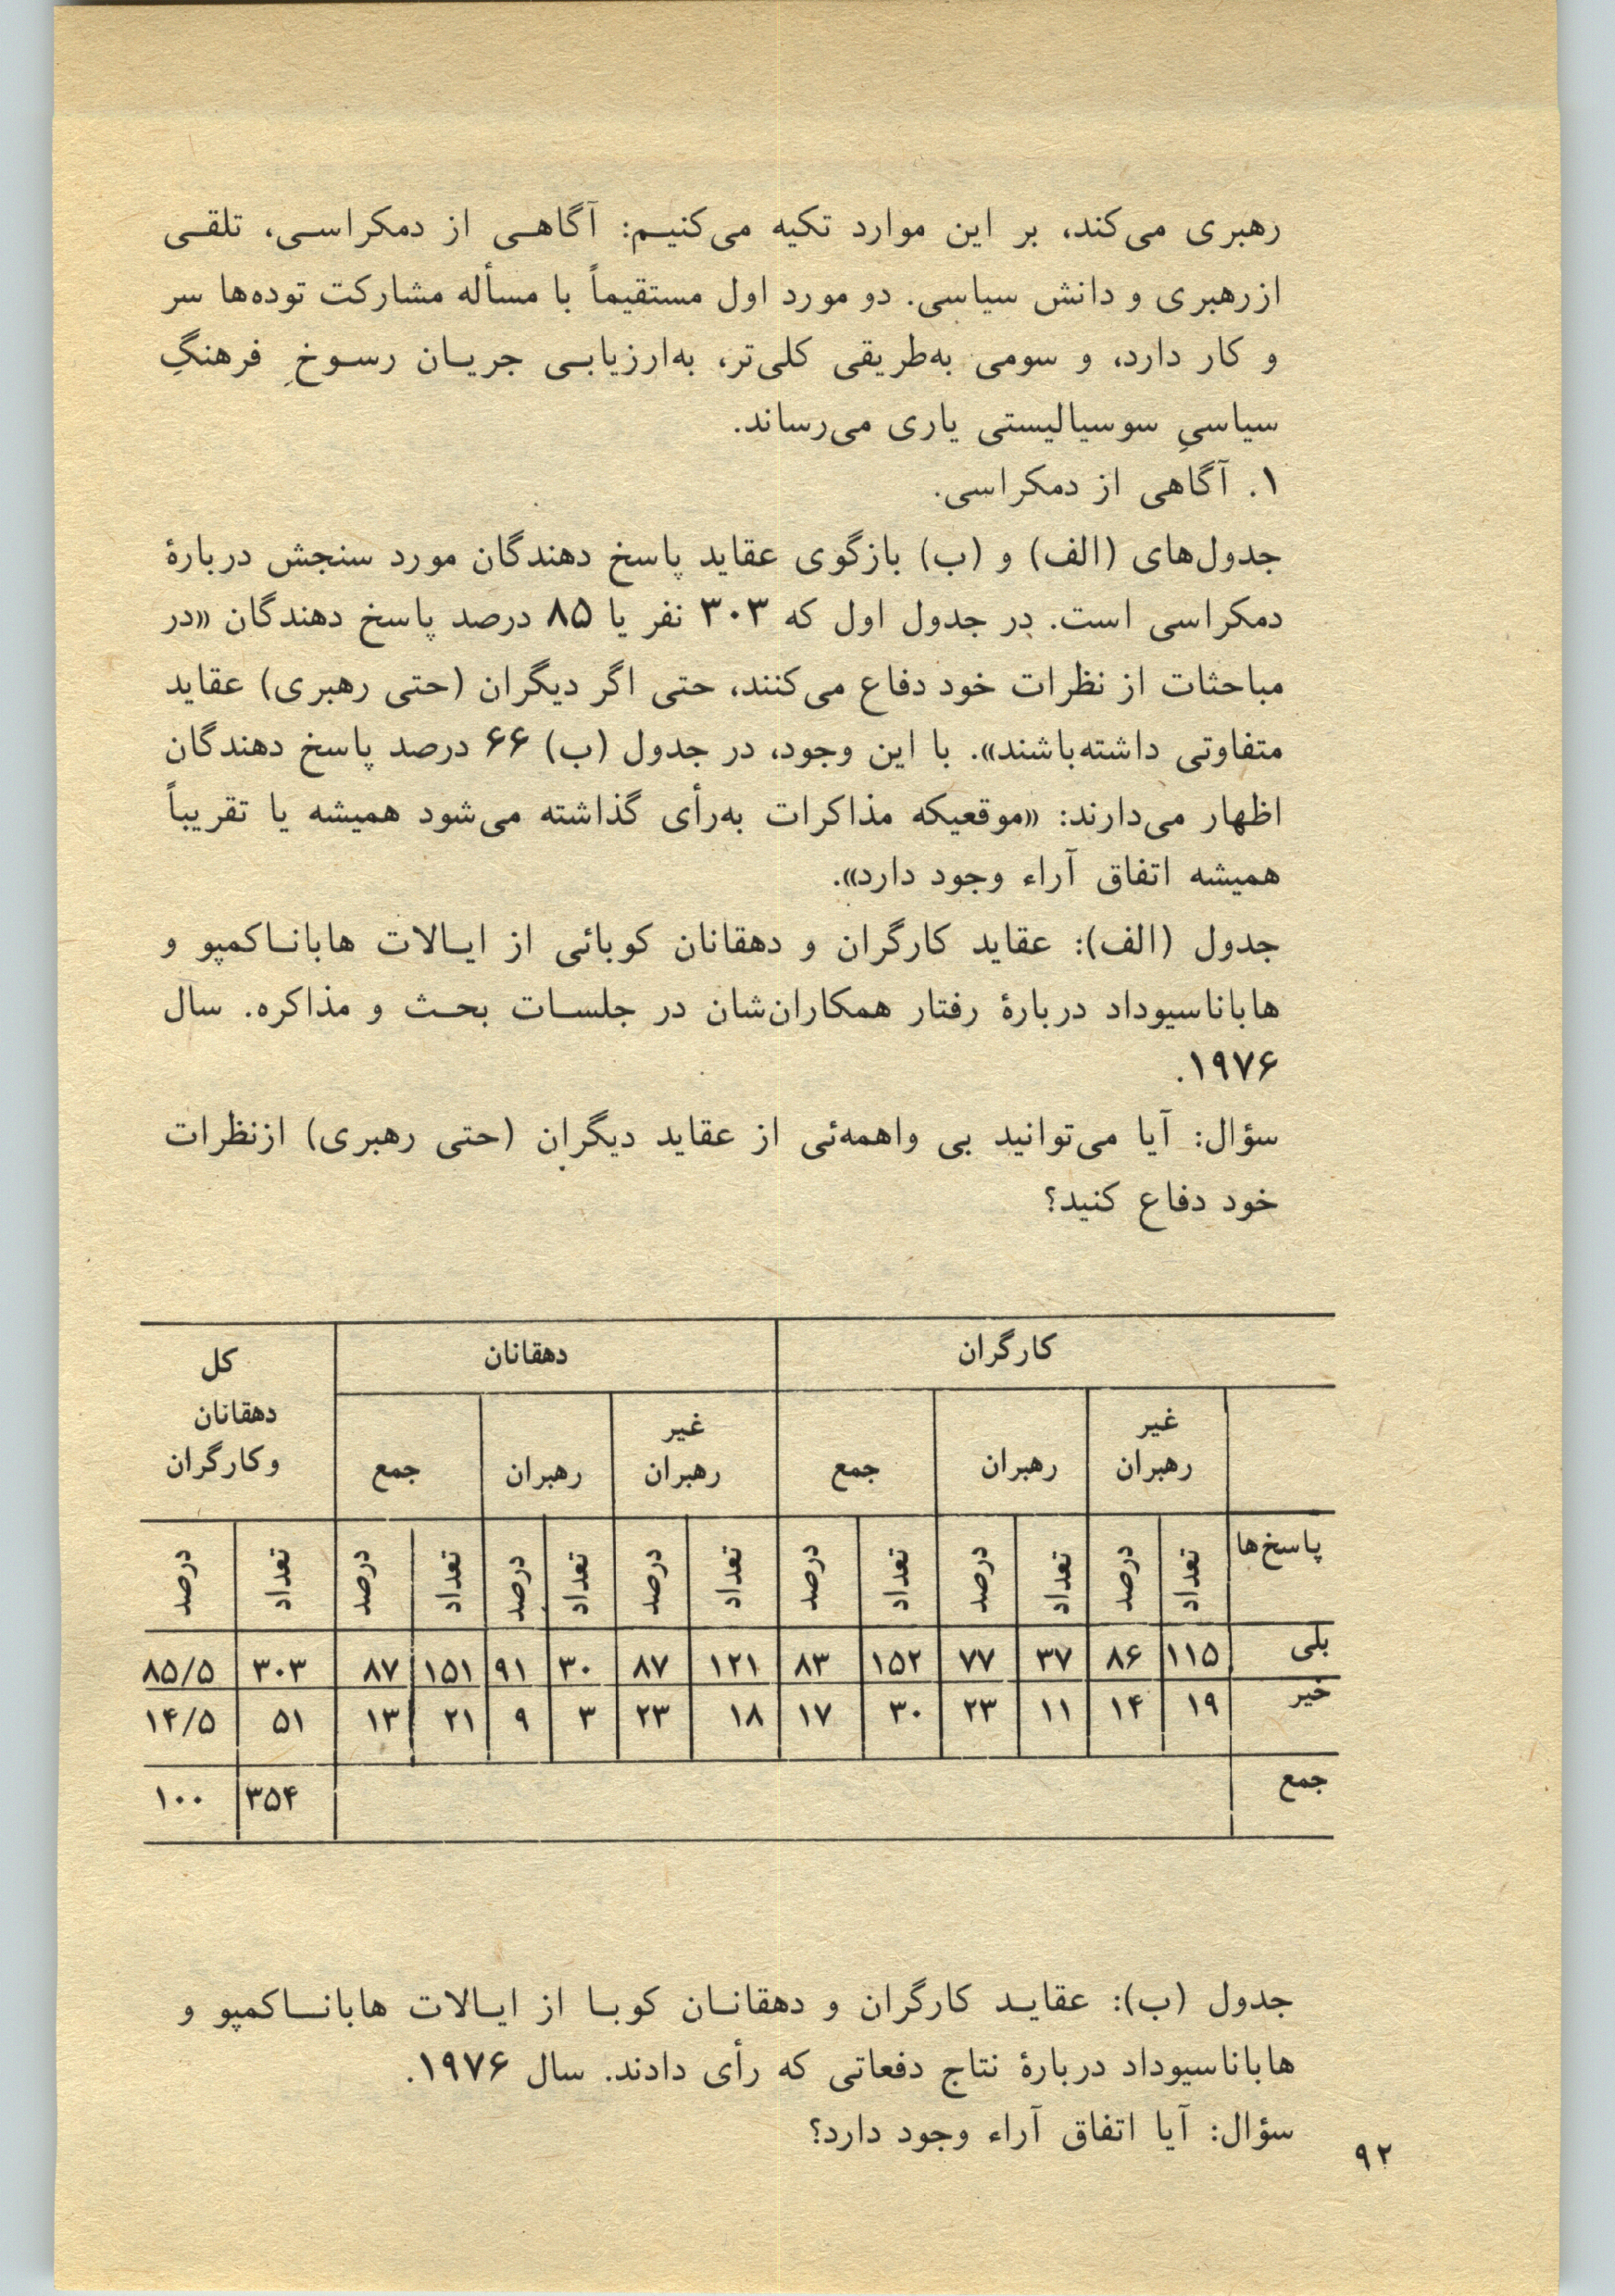 رهبری می‌کند، بر این موارد تکیه می‌کنیم: آگاهی از دمکراسی، تلقی
از رهبری و دانش سیاسی. دو مورد اول مستقیماً با مسأله مشارکت توده‌ها سر
و کار دارد، و سومی به‌طریقی کلی‌تر، به‌ارزیابی جریان رسوخِ فرهنگِ
سیاسیِ سوسیالیستی یاری می‌رساند.
۱. آگاهی از دمکراسی.
جدول‌های (الف) و (ب) بازگوی عقاید پاسخ دهندگان مورد سنجش دربارهٔ
دمکراسی است. در جدول اول که ۳۰۳ نفر یا ۸۵ درصد پاسخ دهندگان «در
مباحثات از نظرات خود دفاع می‌کنند، حتی اگر دیگران (حتی رهبری) عقاید
متفاوتی داشته‌باشند». با این وجود، در جدول (ب) ۶۶ درصد پاسخ دهندگان
اظهار می‌دارند: «موقعیکه مذاکرات به‌رأی گذاشته می‌شود همیشه یا تقریباً
همیشه اتفاق آراء وجود دارد».
جدول (الف): عقاید کارگران و دهقانان کوبائی از ایالات هاباناکمپو و
هاباناسیوداد دربارهٔ رفتار همکاران‌شان در جلسات بحث و مذاکره. سال
۱۹۷۶.
سؤال: آیا می‌توانید بی واهمه‌ئی از عقاید دیگران (حتی رهبری) ازنظرات
خود دفاع کنید؟
کارگران دهقانان کل
دهقانان
وکارگران
غیر رهبران رهبران جمع غیر رهبران رهبران جمع
پاسخ‌ها تعداد درصد تعداد درصد تعداد درصد تعداد درصد تعداد درصد تعداد درصد تعداد درصد
بلی ۱۱۵ ۸۶ ۳۷ ۷۷ ۱۵۲ ۸۳ ۱۲۱ ۸۷ ۳۰ ۹۱ ۱۵۱ ۸۷ ۳۰۳ ۸۵/۵
خیر ۱۹ ۱۴ ۱۱ ۲۳ ۳۰ ۱۷ ۱۸ ۲۳ ۳ ۹ ۲۱ ۱۳ ۵۱ ۱۴/۵
جمع ۳۵۴ ۱۰۰
جدول (ب): عقاید کارگران و دهقانان کوبا از ایالات هاباناکمپو و
هاباناسیوداد دربارهٔ نتاج دفعاتی که رأی دادند. سال ۱۹۷۶.
سؤال: آیا اتفاق آراء وجود دارد؟
۹۲